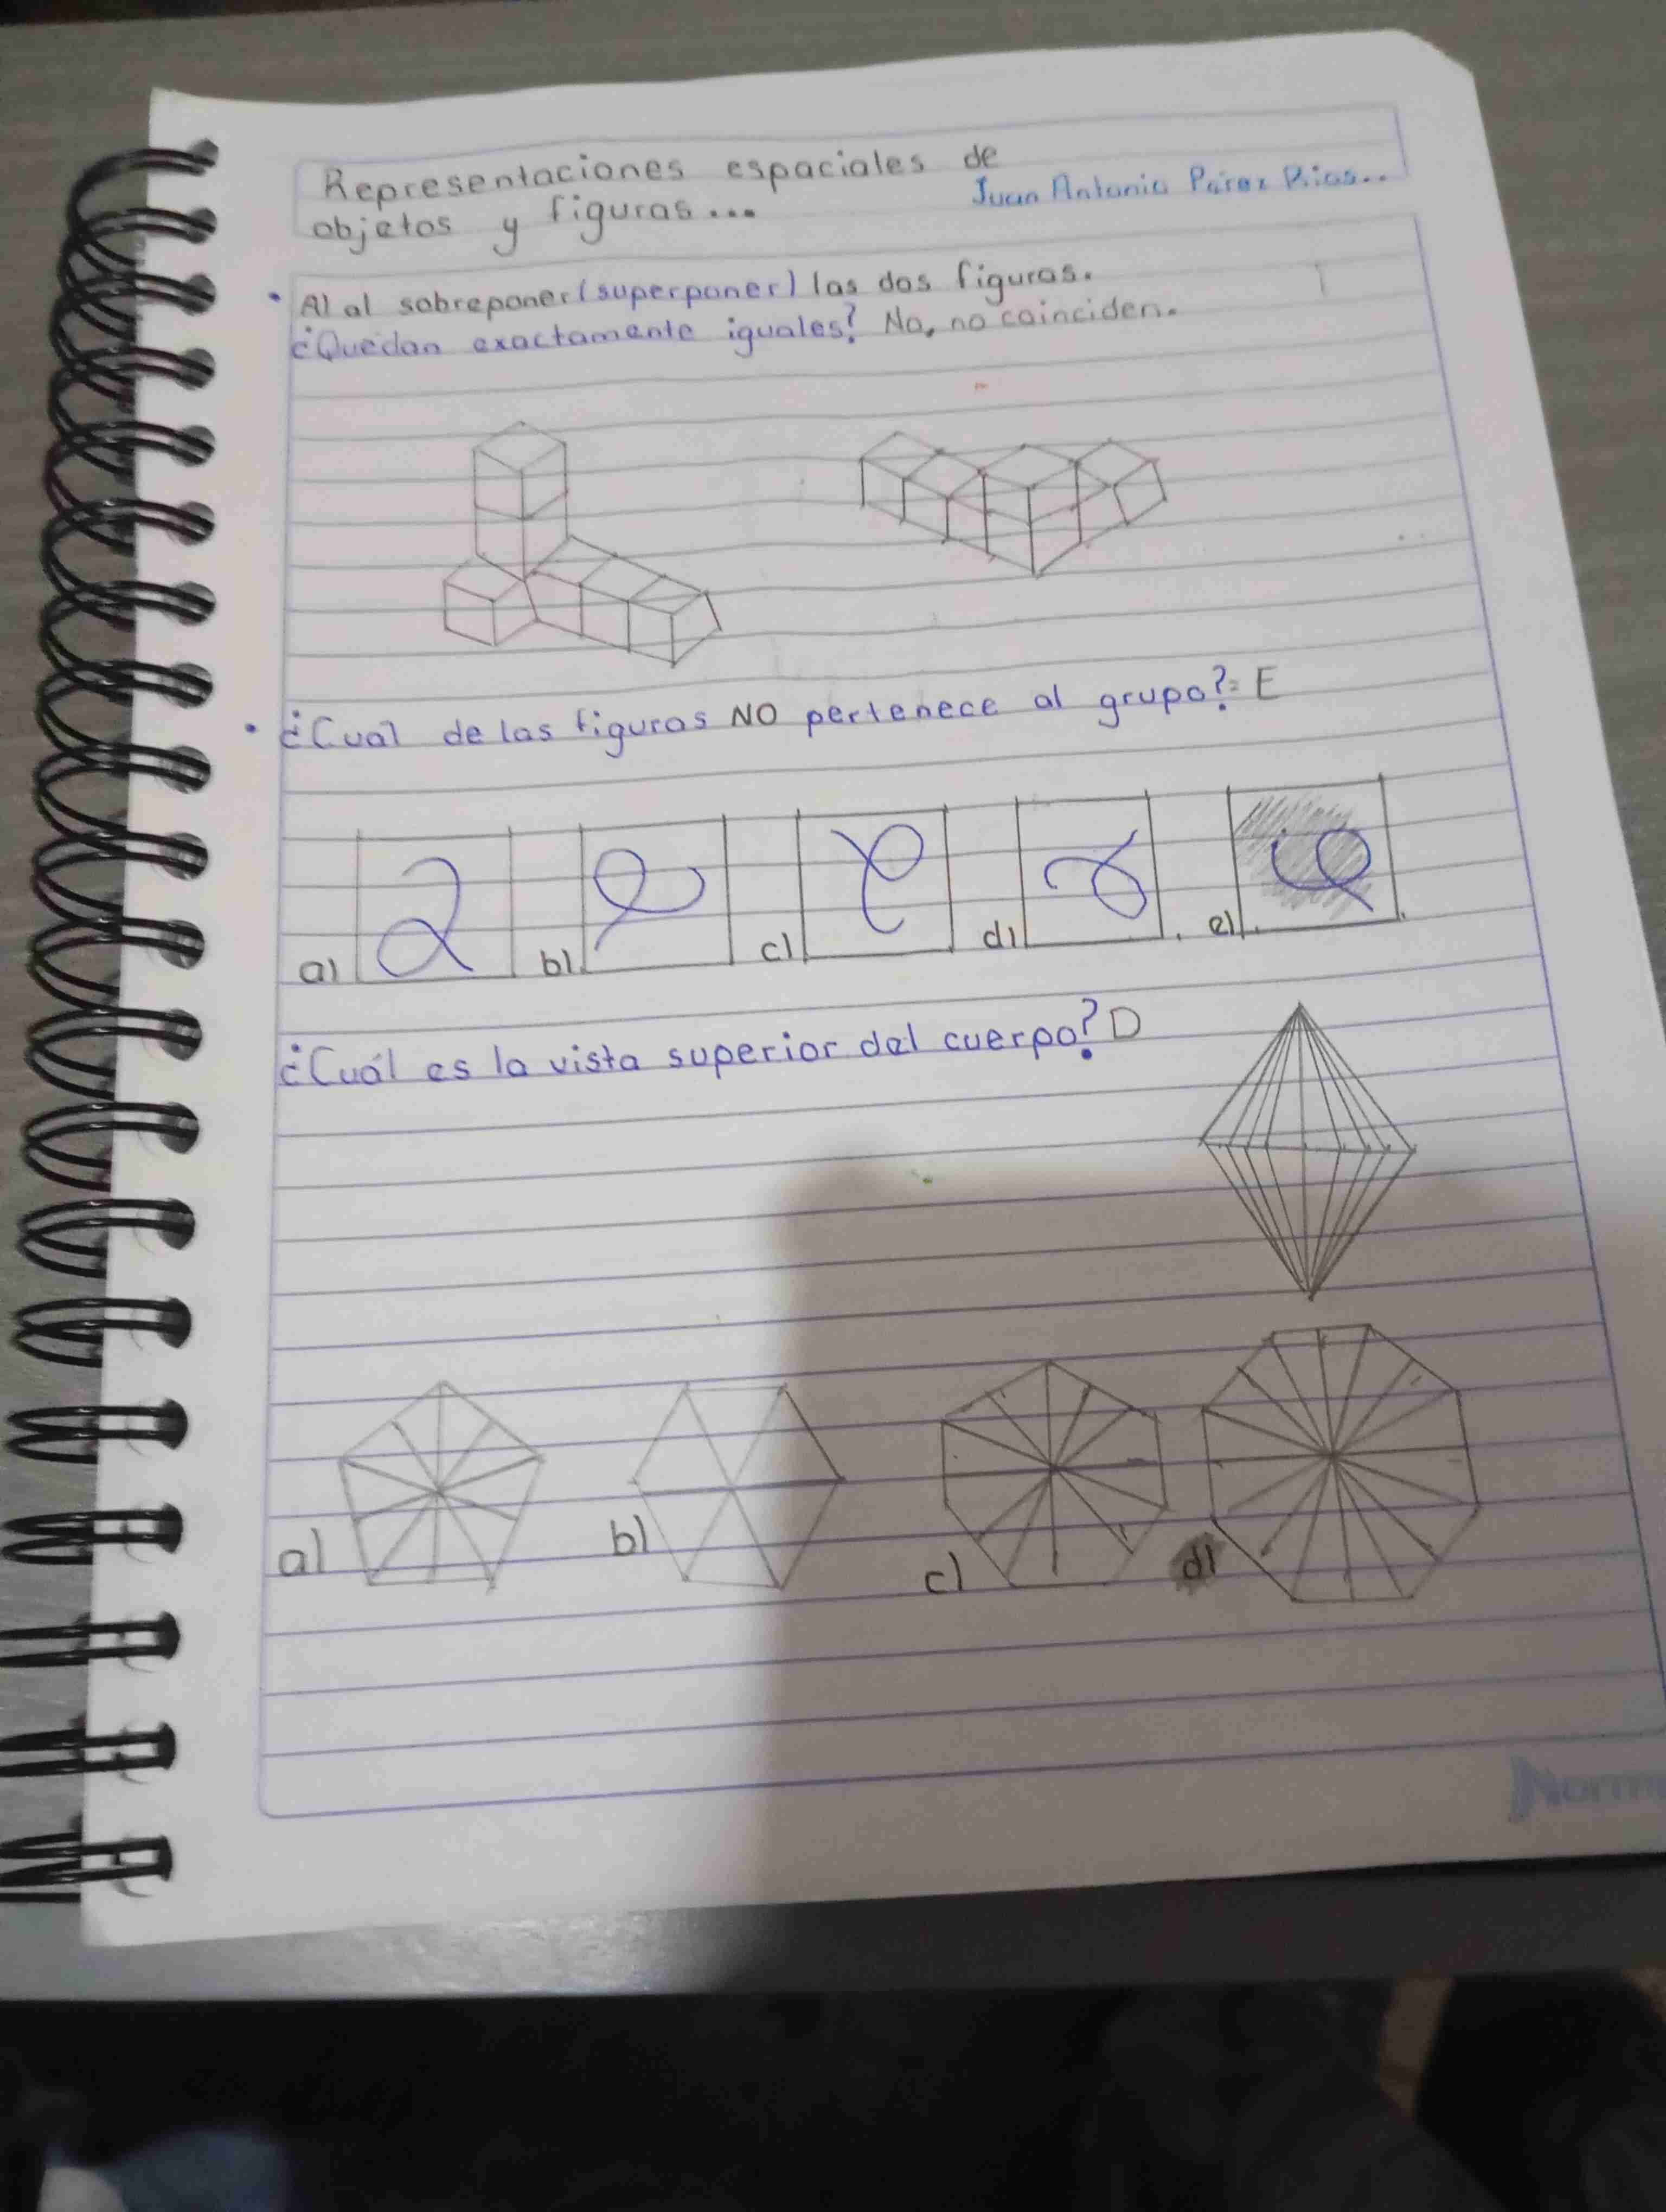 Representaciones espaciales de
objetos y figuras...
Juan Antonio Pérez Rios..
• Al al sobreponer(superponer) las dos figuras.
¿Quedan exactamente iguales? No, no coinciden.
• ¿Cual de las figuras NO pertenece al grupo?= E
a) b) c) d) e)
¿Cuál es la vista superior del cuerpo? D
a) b) c) d)
Norma